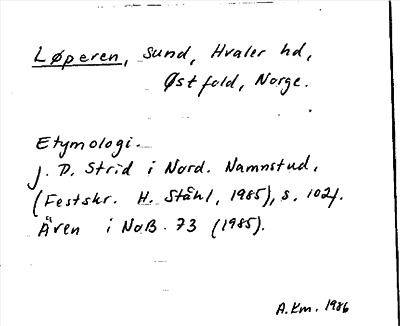 Løperen, sund, Hvaler hd,
Østfold, Norge.
Etymologi.
J. P. Strid i Nord. Namnstud.
(Festskr. H. Ståhl, 1985), s. 102f.
Även i NoB. 73 (1985).
A.Km. 1986